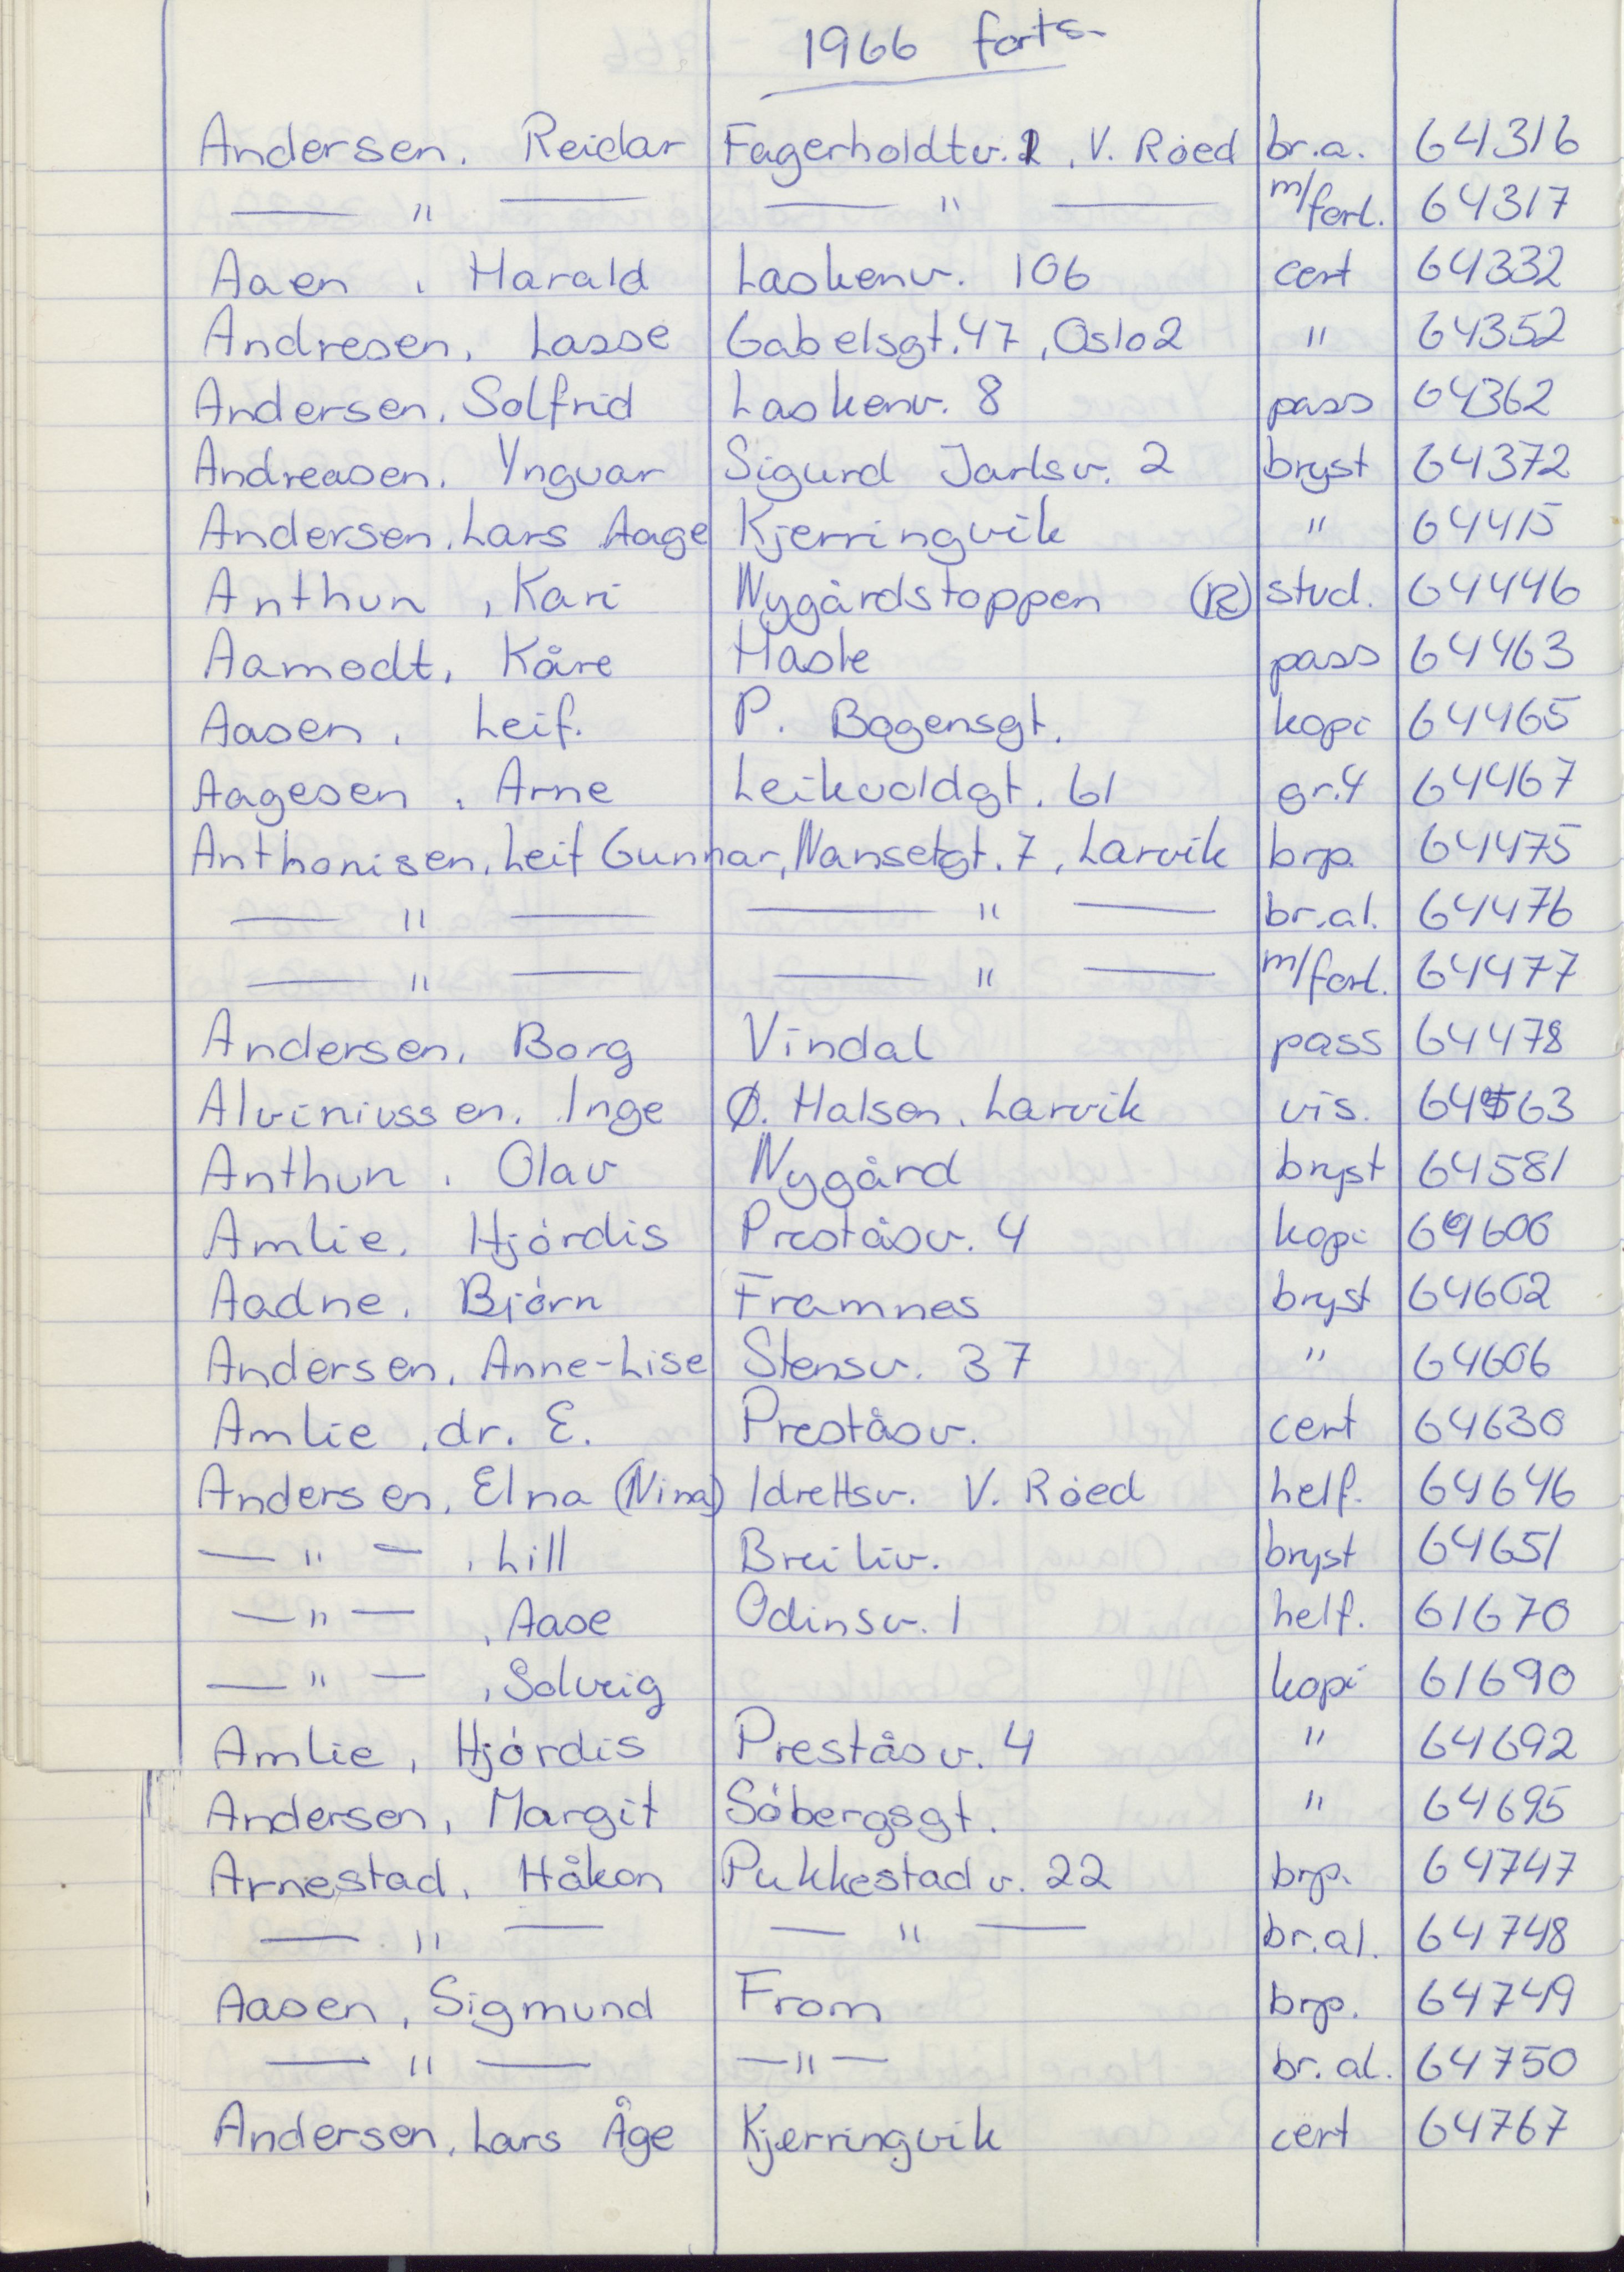 1966 forts-
Andersen, Reidar Fagerholdtv. 2, V. Röed br.a. 64316
— " — — " — m/forl. 64317
Aaen, Harald Laskenv. 106 cert 64332
Andresen, Lasse Gabelsgt. 47, Oslo 2 " 64352
Andersen, Solfrid Laskenv. 8 pass 64362
Andreasen, Yngvar Sigurd Jarlsv. 2 bryst 64372
Andersen, Lars Aage Kjerringvik " 64415
Anthun, Kari Nygårdstoppen (R) stud. 64446
Aamodt, Kåre Hasle pass 64463
Aasen, Leif. P. Bogensgt. kopi 64465
Aagesen, Arne Leikvoldgt. 61 gr.4 64467
Anthonisen, Leif Gunnar, Nansetgt. 7, Larvik brp. 64475
— " — — " — br.al. 64476
— " — — " — m/forl. 64477
Andersen, Borg Vindal pass 64478
Alviniussen, Inge Ø. Halsen, Larvik vis. 64563
Anthun, Olav Nygård bryst 64581
Amlie, Hjördis Preståsv. 4 kopi 64600
Aadne, Björn Framnes bryst 64602
Andersen, Anne-Lise Stensv. 37 " 64606
Amlie, dr. E. Preståsv. cert 64630
Andersen, Elna (Nina) Idrettsv. V. Röed helf. 64646
— " — , Lill Breiliv. bryst 64651
— " — , Aase Odinsv. 1 helf. 61670
— " — , Solveig kopi 61690
Amlie, Hjördis Preståsv. 4 " 64692
Andersen, Margit Söbergsgt. " 64695
Arnestad, Håkon Pukkestadv. 22 brp. 64747
— " — — " — br.al. 64748
Aasen, Sigmund From brp. 64749
— " — — " — br.al. 64750
Andersen, Lars Åge Kjerringvik cert 64767